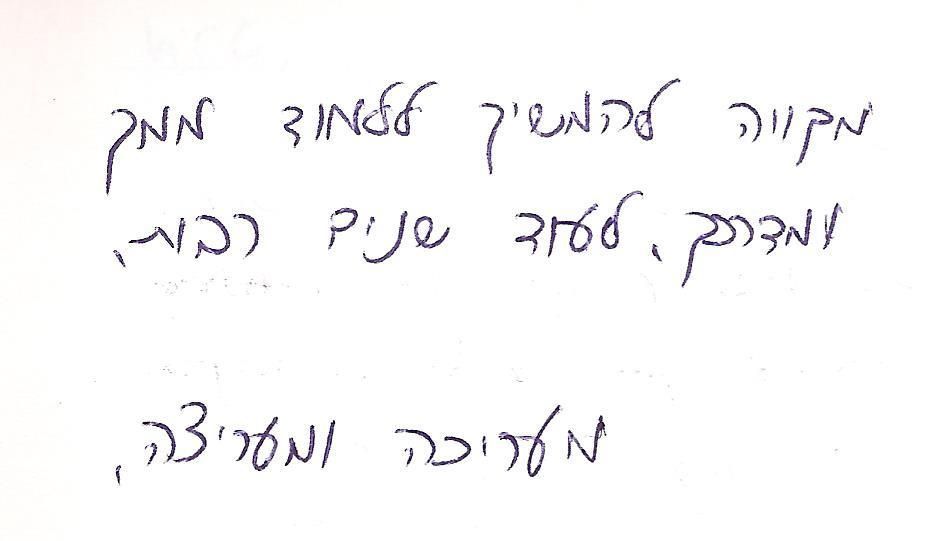 מקווה להמשיך ללמוד ממך
ומדרכך, לעוד שנים רבות,
מעריכה ומעריצה,